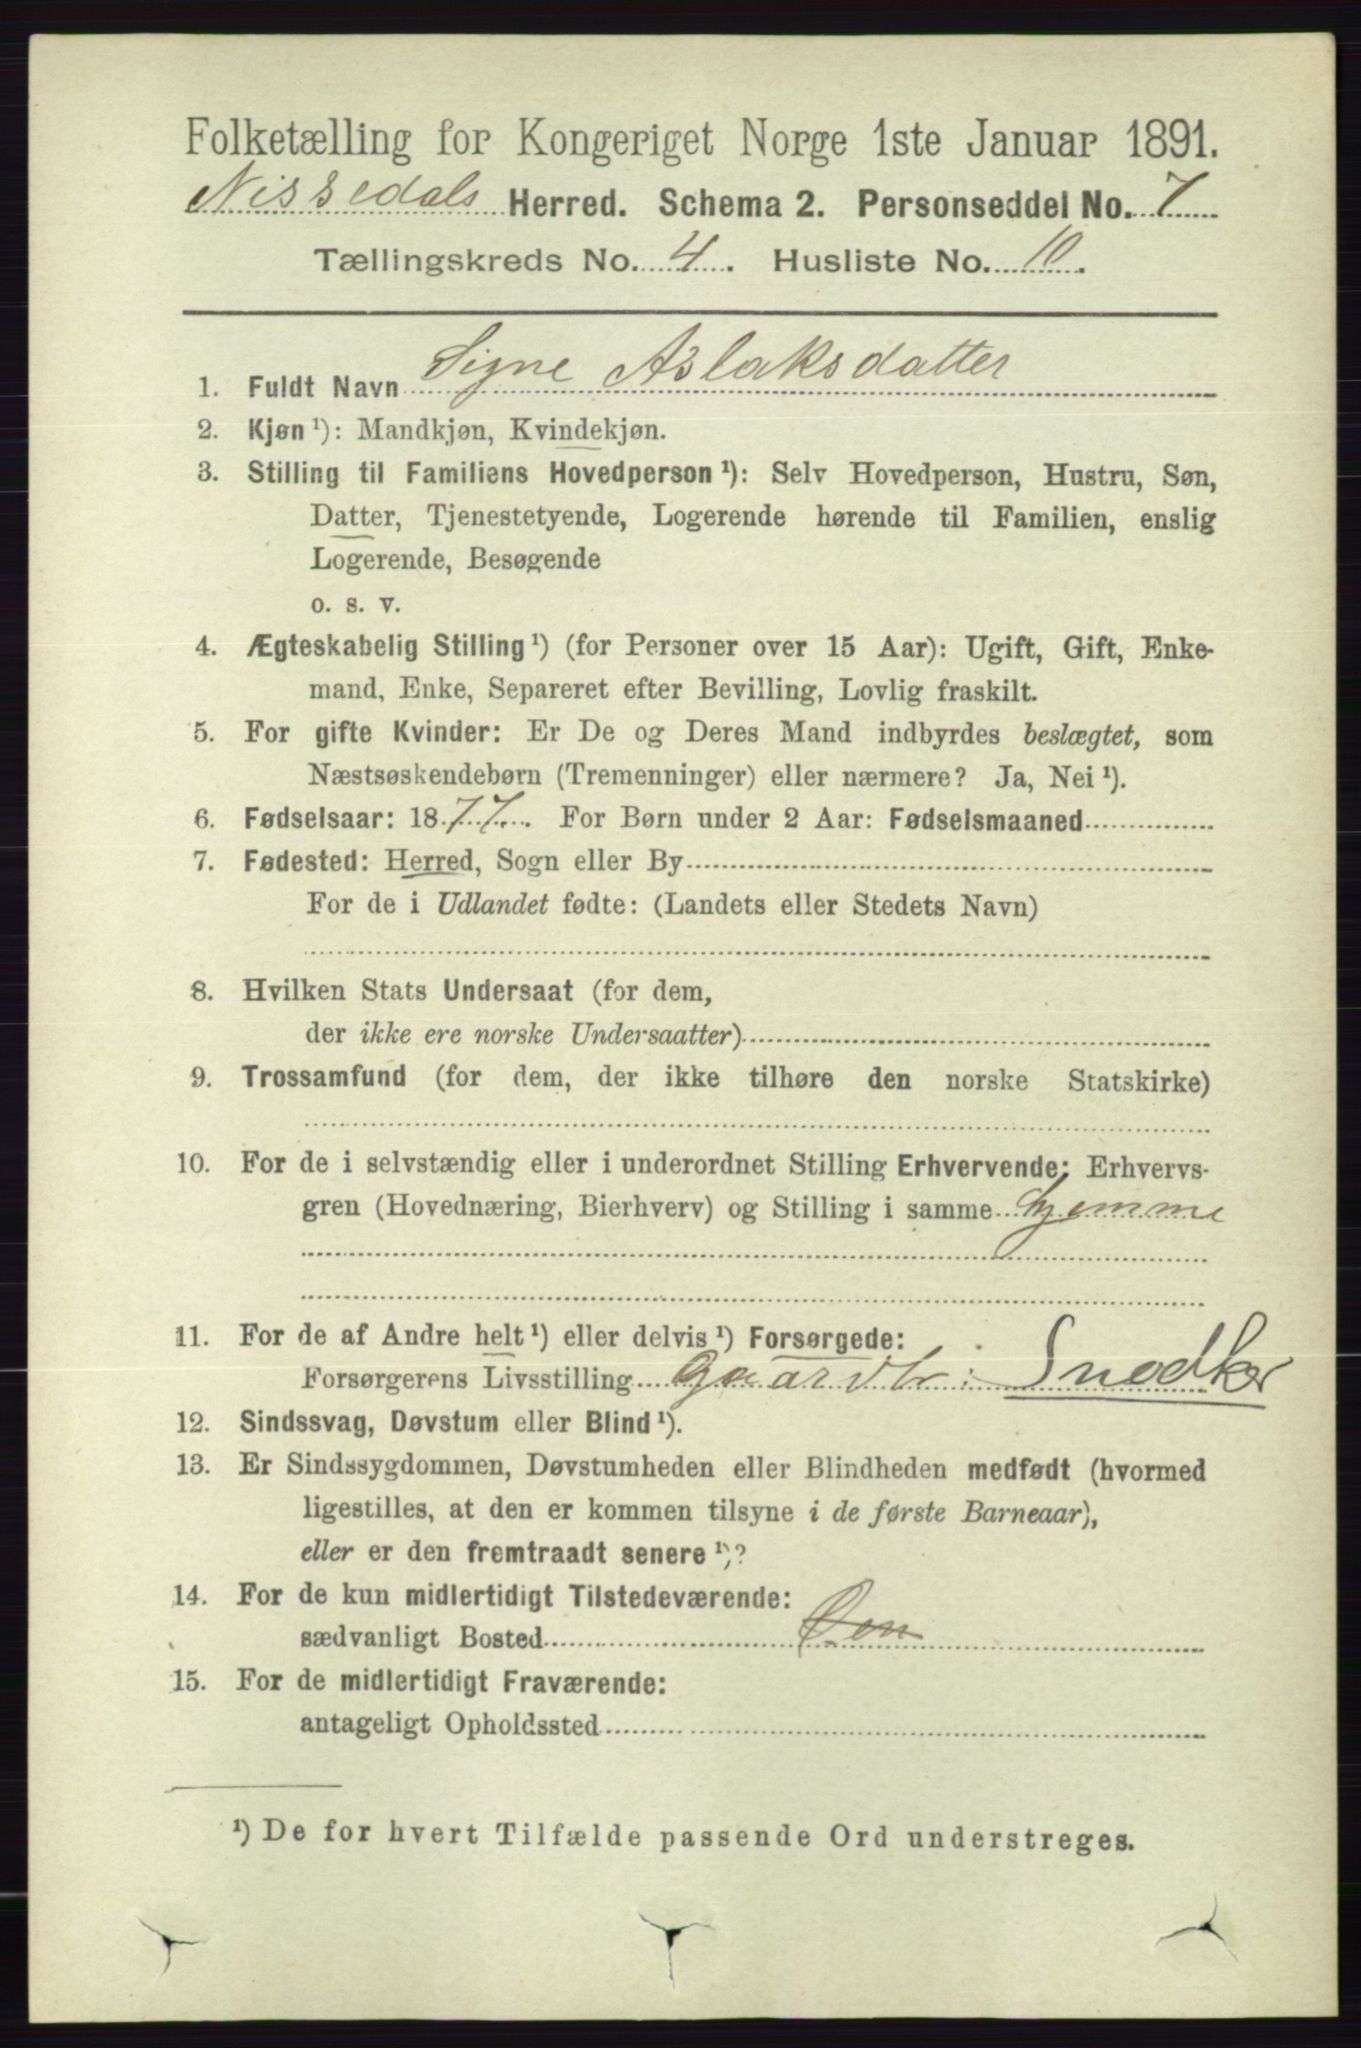 Folketælling for Kongeriget Norge 1ste Januar 1891.
Nissedals Herred. Schema 2. Personseddel No. 7
Tællingskreds No. 4. Husliste No. 10.
1. Fuldt Navn Signe Aslaksdatter
2. Kjøn ¹): Mandkjøn, Kvindekjøn.
3. Stilling til Familiens Hovedperson ¹): Selv Hovedperson, Hustru, Søn,
Datter, Tjenestetyende, Logerende hørende til Familien, enslig
Logerende, Besøgende
o. s. v.
4. Ægteskabelig Stilling ¹) (for Personer over 15 Aar): Ugift, Gift, Enke-
mand, Enke, Separeret efter Bevilling, Lovlig fraskilt.
5. For gifte Kvinder: Er De og Deres Mand indbyrdes beslægtet, som
Næstsøskendebørn (Tremenninger) eller nærmere? Ja, Nei ¹).
6. Fødselsaar: 1877. For Børn under 2 Aar: Fødselsmaaned
7. Fødested: Herred, Sogn eller By
For de i Udlandet fødte: (Landets eller Stedets Navn)
8. Hvilken Stats Undersaat (for dem,
der ikke ere norske Undersaatter)
9. Trossamfund (for dem, der ikke tilhøre den norske Statskirke)
10. For de i selvstændig eller i underordnet Stilling Erhvervende: Erhvervs-
gren (Hovednæring, Bierhverv) og Stilling i samme hjemme
11. For de af Andre helt ¹) eller delvis ¹) Forsørgede:
Forsørgerens Livsstilling Gaardbr: Snedker
12. Sindssvag, Døvstum eller Blind ¹).
13. Er Sindssygdommen, Døvstumheden eller Blindheden medfødt (hvormed
ligestilles, at den er kommen tilsyne i de første Barneaar),
eller er den fremtraadt senere ¹)?
14. For de kun midlertidigt Tilstedeværende:
sædvanligt Bosted
15. For de midlertidigt Fraværende:
antageligt Opholdssted
¹) De for hvert Tilfælde passende Ord understreges.